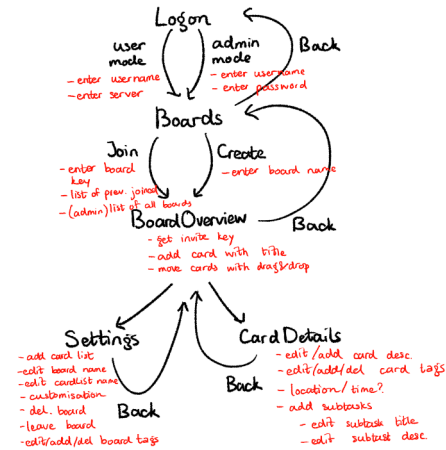 Logon
user mode
admin mode
Back
- enter username
- enter server
- enter username
- enter password
Boards
Join
Create
- enter board key
- list of prev. joined
- (admin) list of all boards
- enter board name
BoardOverview
Back
- get invite key
- add card with title
- move cards with drag&drop
Settings
- add card list
- edit board name
- edit cardlist name
- customisation
- del. board
- leave board
- edit/add/del board tags
Back
Card Details
- edit/add card desc.
- edit/add/del card tags
- location/time?
- add subtasks
- edit subtask title
- edit subtask desc.
Back